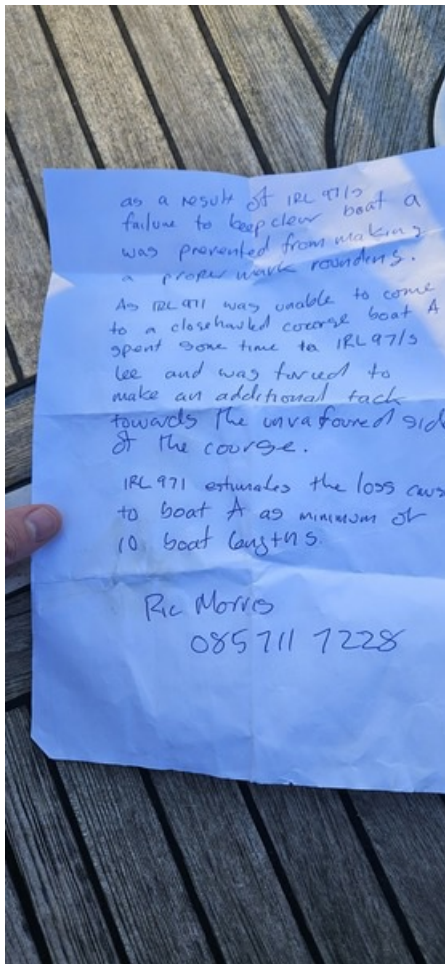 as a result of IRL 971's
failure to keep clear boat a
was prevented from making
a proper mark rounding.
As IRL 971 was unable to come
to a closehauled cororse boat A
spent some time to IRL 971's
lee and was forced to
make an additional tack
towards the unvafoured sid
of the course.
IRL 971 estimates the loss caus
to boat A as minimum of
10 boat lengths.
Ric Morris
085 711 7228